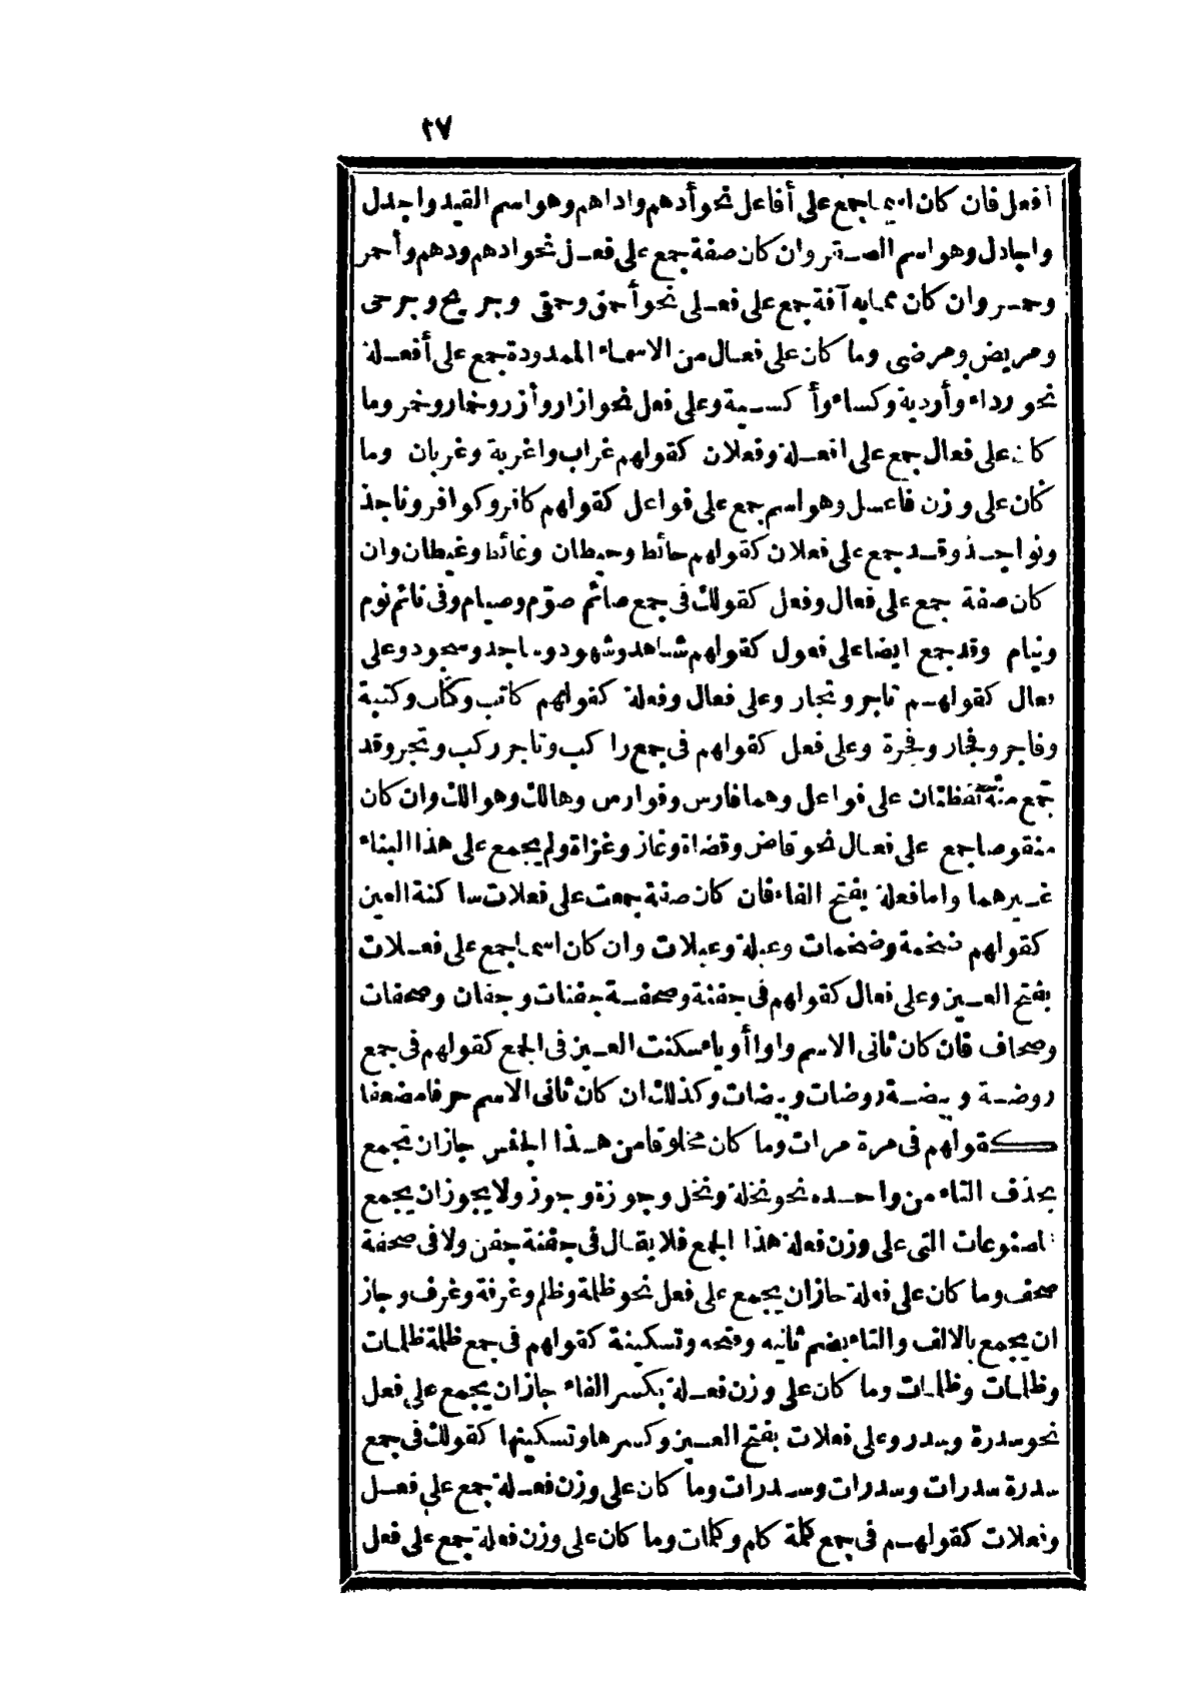 ٢٧
أفعل فان كان اسما جمع على أفاعل نحو أدهم واداهم وهو اسم القيد واجدل
واجادل وهو اسم الصقر وان كان صفة جمع على فعل نحو ادهم ودهم وأحمر
وحمر وان كان مما به آفة جمع على فعلى نحو أحمق وحمقى وجريح وجرحى
ومريض ومرضى وما كان على فعال من الاسماء الممدودة جمع على أفعلة
نحو رداء وأردية وكساء وأكسية وعلى فعل نحو ازار وأزر وخمار وخمر وما
كان على فعال جمع على افعلة وفعلان كقولهم غراب واغربة وغربان وما
كان على وزن فاعل وهو اسم جمع على فواعل كقولهم كافر وكوافر وناجذ
ونواجذ وقد جمع على فعلان كقولهم حائط وحيطان وغائط وغيطان وان
كان صفة جمع على فعال وفعل كقولك فى جمع صائم صوّم وصيام وفى نائم نوم
ونيام وقد جمع ايضا على فعول كقولهم شاهد وشهود وساجد وسجود وعلى
فعال كقولهم تاجر وتجار وعلى فعال وفعلة كقولهم كاتب وكتّاب وكتبة
وفاجر وفجار وفجرة وعلى فعل كقولهم فى جمع راكب وتاجر ركب وتجر وقد
جمع منه لفظتان على فواعل وهما فارس وفوارس وهالك وهوالك وان كان
منقوصا جمع على فعال نحو قاض وقضاة وغاز وغزاة ولم يجمع على هذا البناء
غيرهما واما فعلة بفتح الفاء فان كان صفة جمعت على فعلات ساكنة العين
كقولهم ضخمة وضخمات وعبلة وعبلات وان كان اسما جمع على فعلات
بفتح العين وعلى فعال كقولهم فى جفنة وصحفة جفنات وجفان وصحفات
وصحاف فان كان ثانى الاسم واوا أو ياء سكنت العين فى الجمع كقولهم فى جمع
روضة وبيضة روضات وبيضات وكذلك ان كان ثانى الاسم حرفا مضعفا
كقولهم فى مرة مرات وما كان مخلوقا من هذا الجنس جاز ان تجمع
بحذف التاء من واحده نحو نخلة ونخل وجوزة وجوز ولا يجوز ان يجمع
المصنوعات التى على وزن فعلة هذا الجمع فلا يقال فى جفنة جفن ولا فى صحفة
صحف وما كان على فعلة جاز ان يجمع على فعل نحو ظلمة وظلم وغرفة وغرف وجاز
ان يجمع بالالف والتاء بضم ثانيه وفتحه وتسكينة كقولهم فى جمع ظلمة ظلمات
وظلمات وظلمات وما كان على وزن فعلة بكسر الفاء جاز ان يجمع على فعل
نحو سدرة وسدر وعلى فعلات بفتح العين وكسرها وتسكينها كقولك فى جمع
سدرة سدرات وسدرات وسدرات وما كان على وزن فعلة جمع على فعل
وفعلات كقولهم فى جمع كلمة كلم وكلمات وما كان على وزن فعلة جمع على فعل